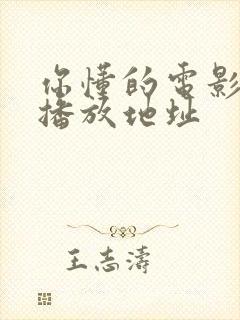 你懂的电影
播放地址
王志濤